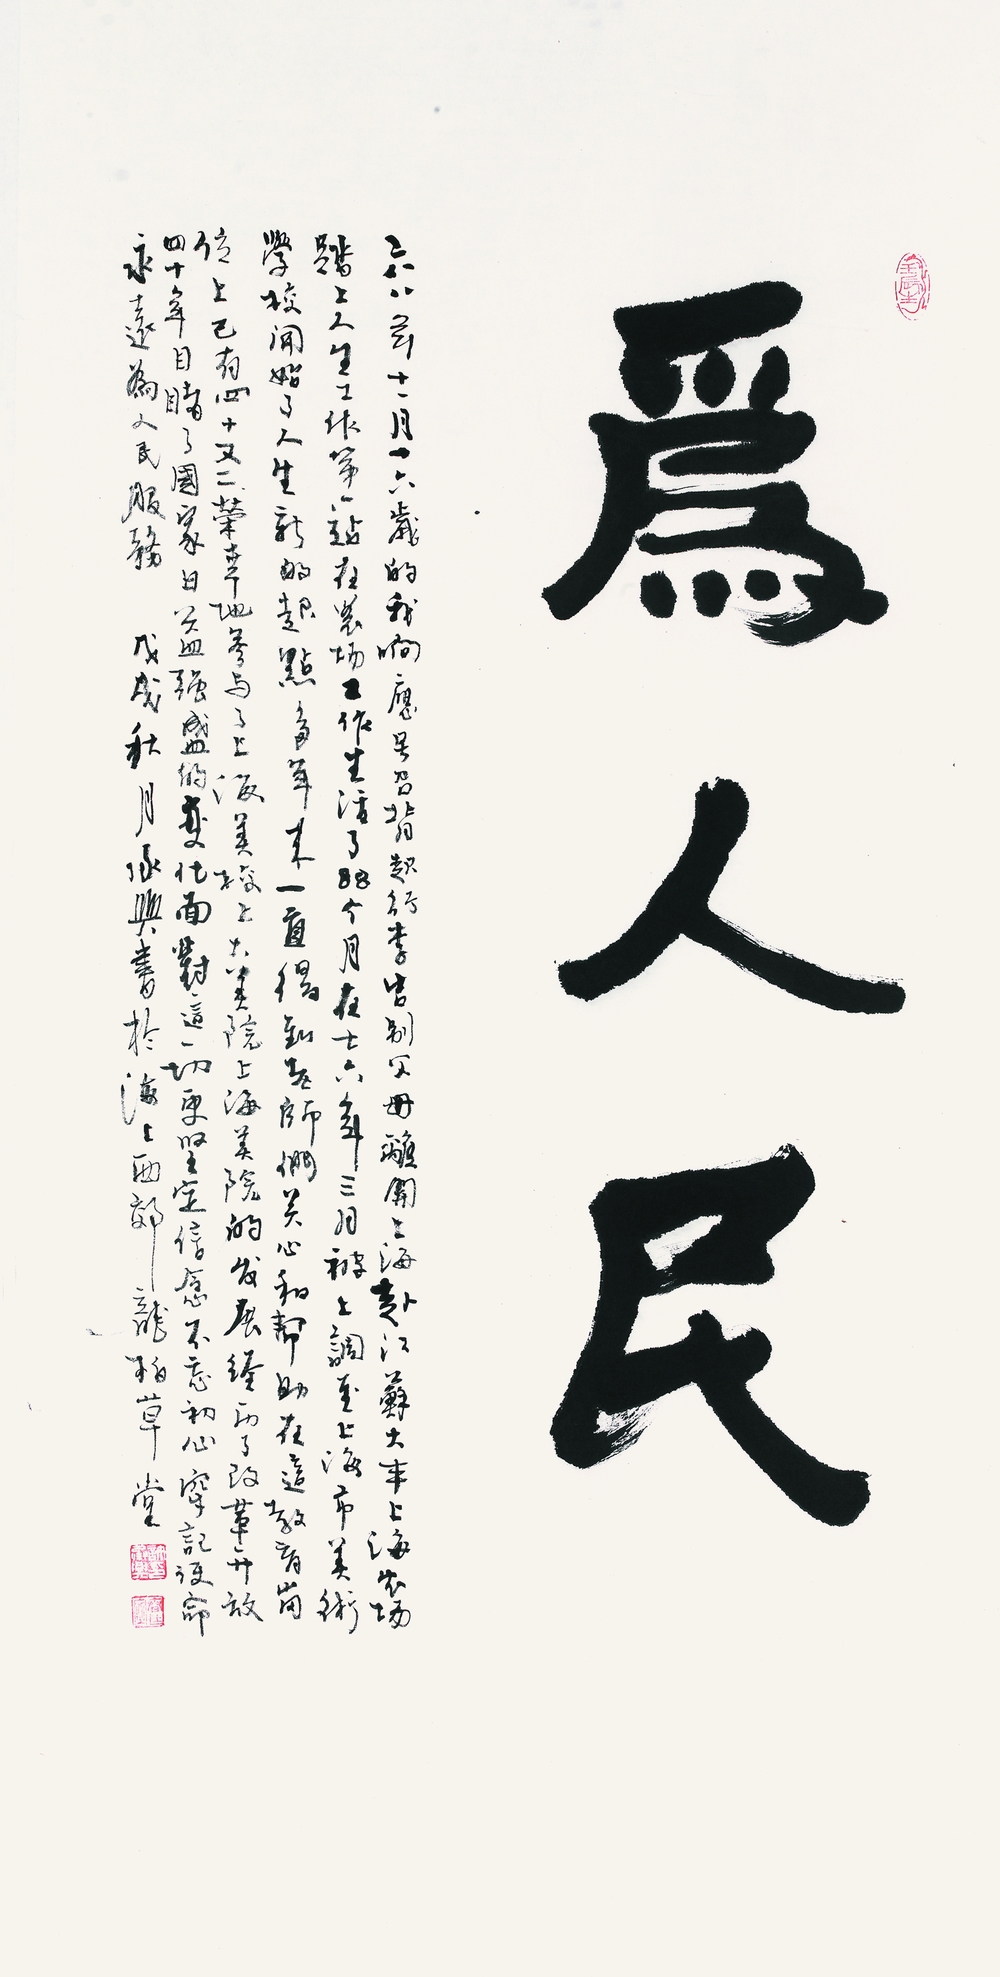 為人民
六八年十一月十六歲的我响應号召背起行李告别父母離開上海赴江蘇大丰上海农场
踏上人生工作第一站在農场工作生活了88个月在七六年三月被上調至上海市美術
學校開始了人生新的起點多年来一直得到老師們关心和幫助在這教育崗
位上已有四十又二榮幸地参与了上海美校上大美院上海美院的发展经历了改革开放
四十年目睹了國家日益强盛的变化面對這一切更坚定信念不忘初心牢記使命
永遠為人民服務 戊戌秋月承興書於海上西郊龍柏草堂